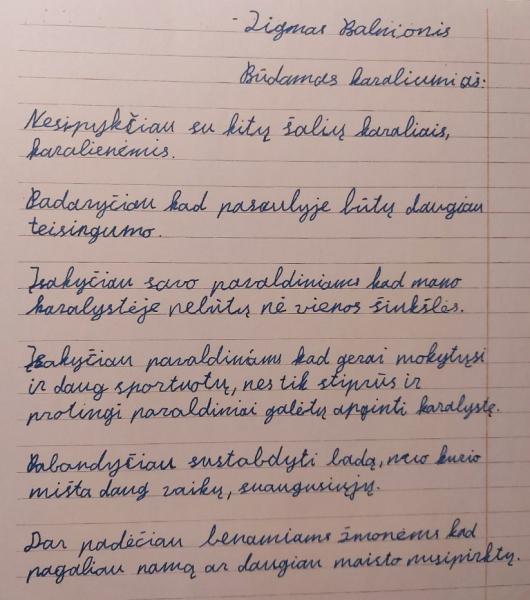 Zigmas Balnionis
Būdamas karaliumi aš:
Nesipykčiau su kitų šalių karaliais,
karalienėmis.
Padaryčiau kad pasaulyje būtų daugiau
teisingumo.
Įsakyčiau savo pavaldiniams kad mano
karalystėje nebūtų nė vienos šiukšlės.
Įsakyčiau pavaldiniams kad gerai mokytųsi
ir daug sportuotų, nes tik stiprūs ir
protingi pavaldiniai galėtų apginti karalystę.
Pabandyčiau sustabdyti badą, nuo kurio
miršta daug vaikų, suaugusiųjų.
Dar padėčiau benamiams žmonėms kad
pagaliau namą ar daugiau maisto nusipirktų.